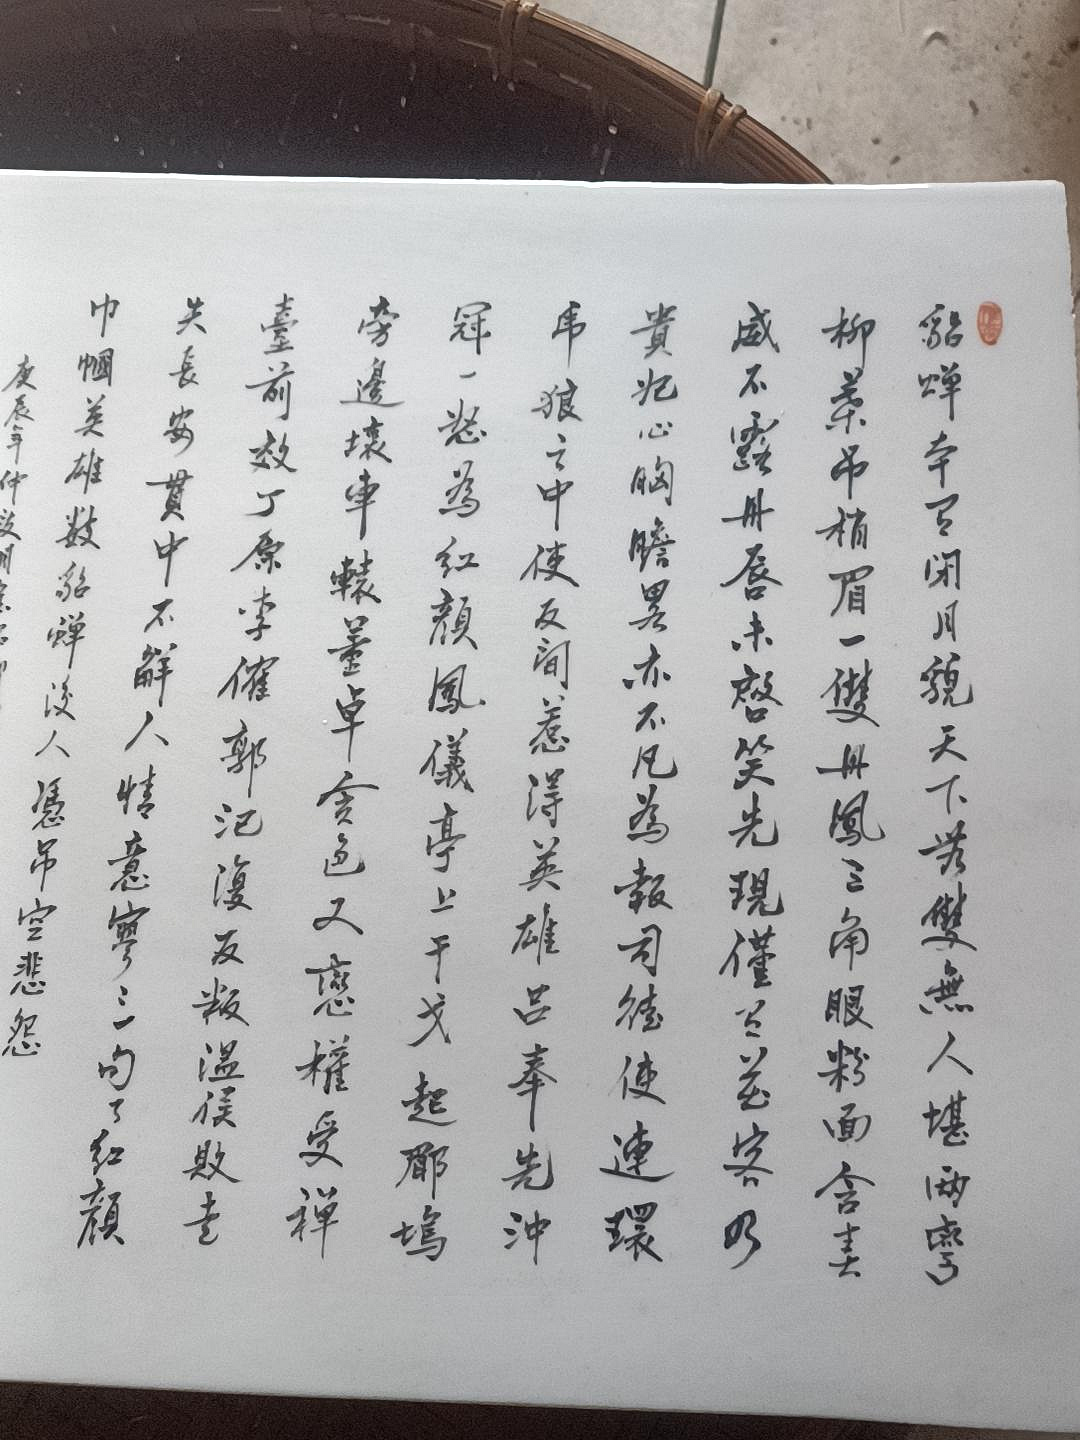 貂蟬本有閉月貌天下無雙無人堪兩彎
柳葉吊梢眉一雙丹鳳三角眼粉面含春
威不露丹唇未啓笑先現僅有花容如
貴妃心胸瞻畧亦不凡為報司徒使連環
虎狼之中使反间惹得英雄吕奉先沖
冠一怒為紅顏鳳儀亭上干戈起郿塢
旁邊壞車轅董卓貪色又戀權受禪
臺前效丁原李傕郭汜復反叛温侯敗走
失長安貫中不解人情意寥寥三句了紅顏
巾幗英雄數貂蟬後人憑吊空悲怨
庚辰年仲